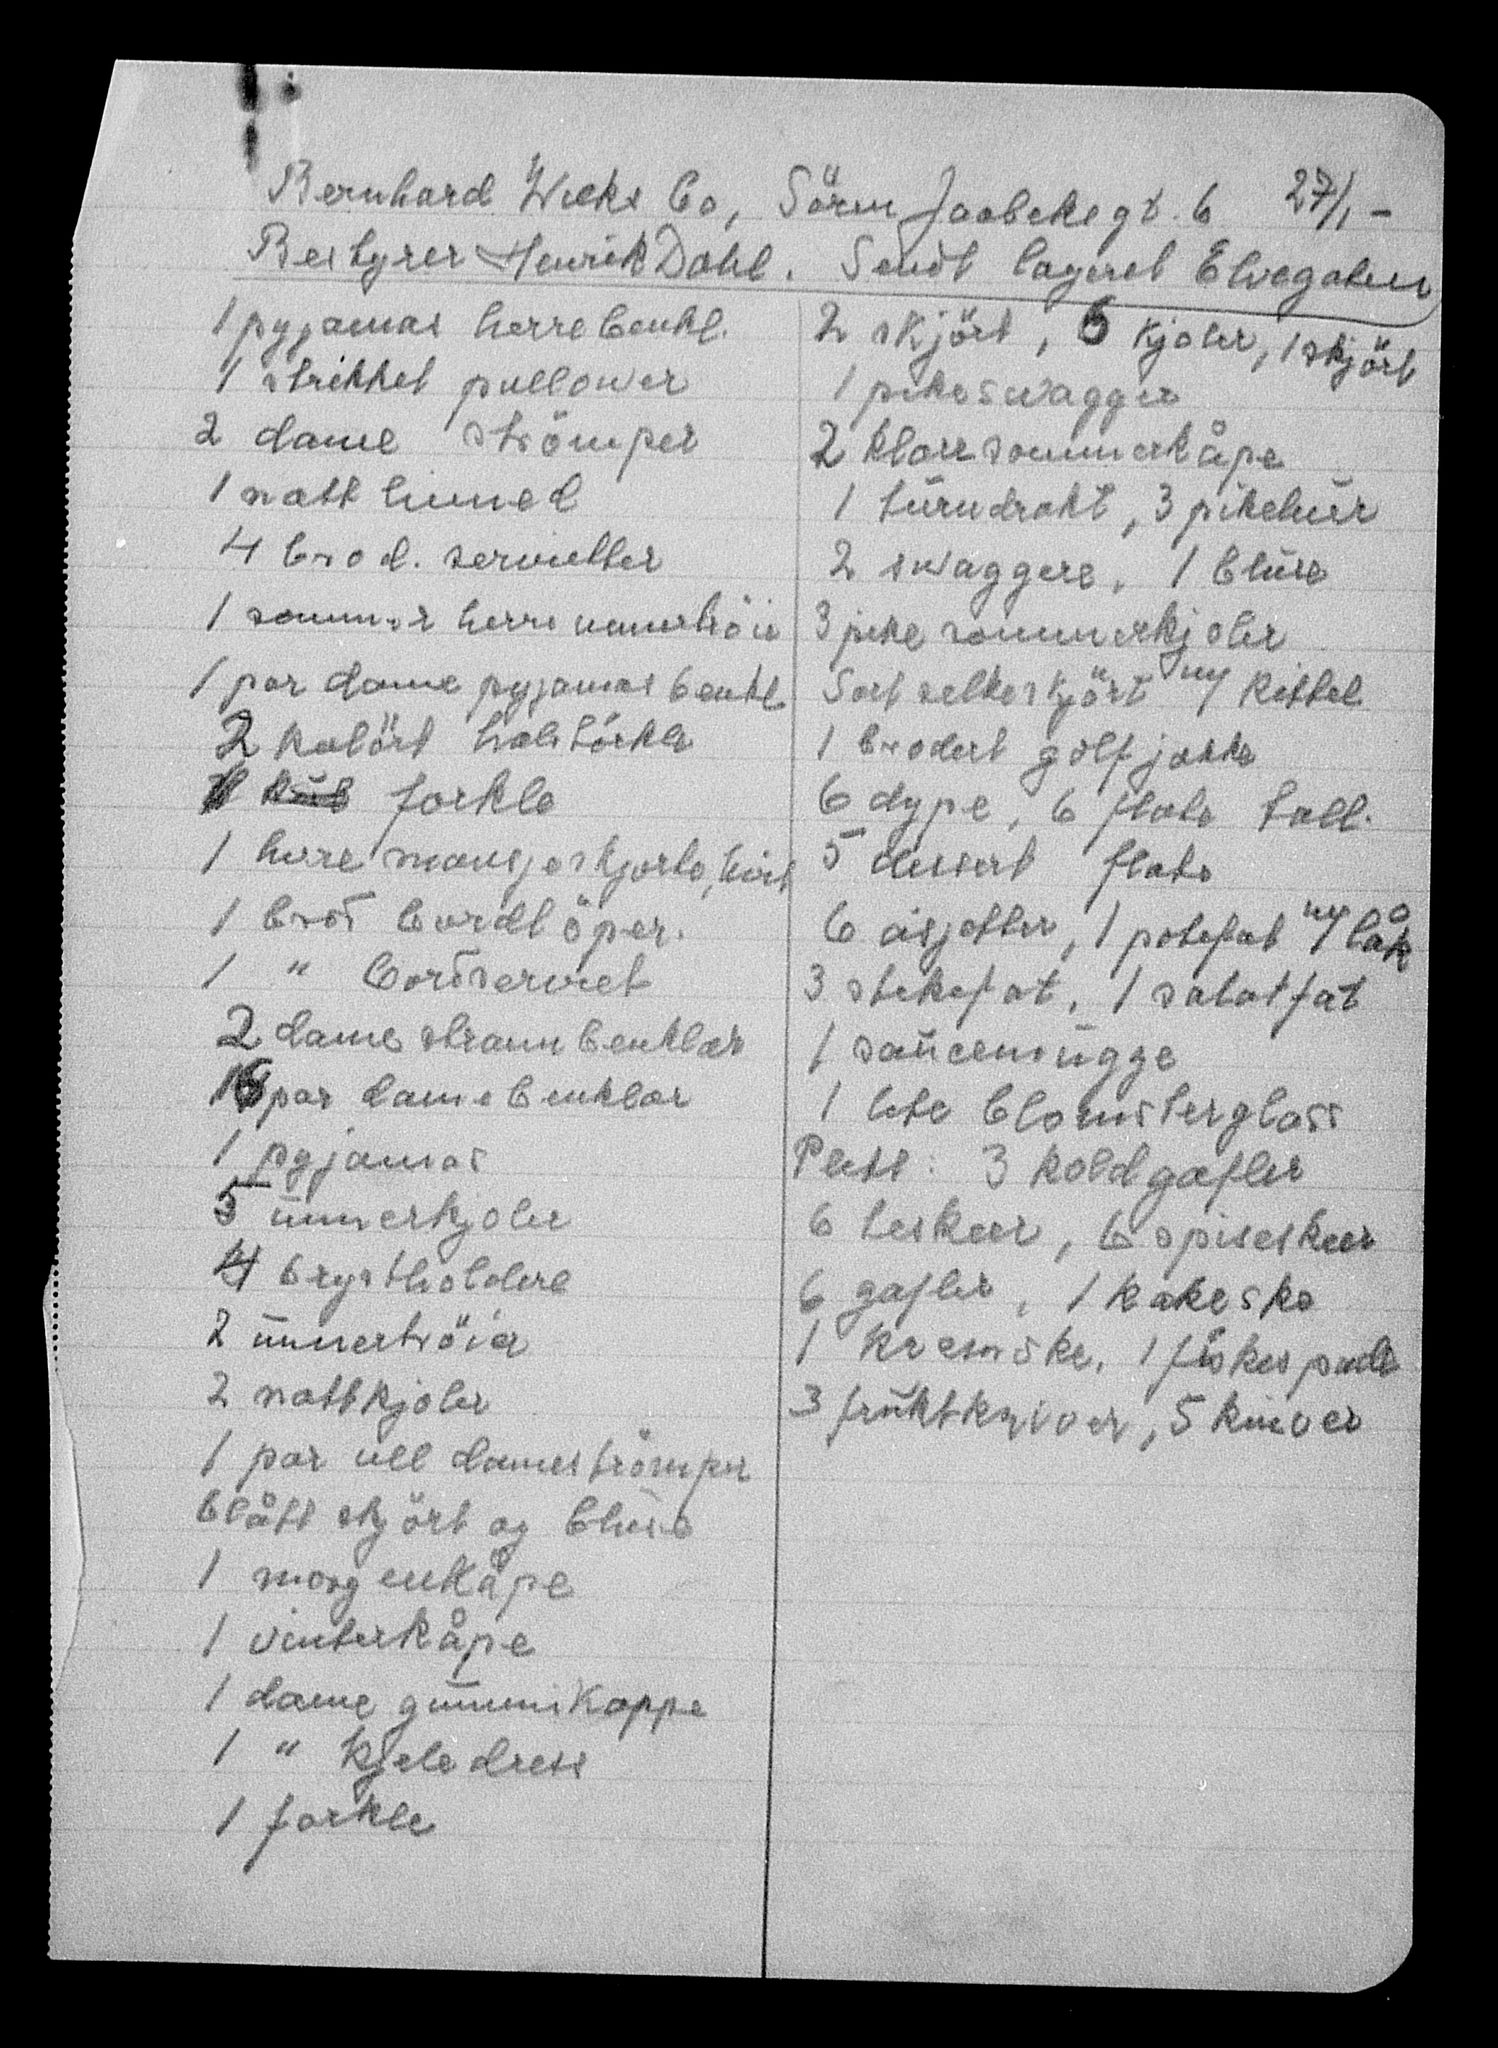 Bernhard Wieks Co, Sören Jaabeksgt. 6 27/1 -
Bestyrer Henrik Dahl. Sendt lageret Elvegaten
1 pyjamas herrebenkl.
1 strikket pullower
2 dame strömper
1 natt linned
4 brod. servietter
1 sommer herre unnertröie
1 par dame pyjamas benkl.
2 kulört halstörkle
forkle
1 herre mansjeskjorte, hvit
1 brod bordlöper.
1 " bordserviet
2 dame strann benklær
par dame benklær
1 pyjamas
5 unnerkjoler
4 brystholdere
2 unnertröier
2 nattkjoler
1 par ull dameströmper
blått skjört og bluse
1 morgenkåpe
1 vinterkåpe
1 dame gummikappe
1 " kjeledress
1 forkle
2 skjört, 6 kjoler, 1 skjört
1 pikeswagger
2 klare sommerkåpe
1 turndrakt, 3 pikeluer
2 swaggere, 1 bluse
3 pike sommerkjoler
Sort silkeskjört, ny kittel
1 brodert golfjakke
6 dype, 6 flate tall.
5 dessert flate
6 asjetter, 1 potetfat m/ låk
3 stekefat, 1 salatfat
1 saucemugge
1 lite blomsterglass
Plett: 3 koldgafler
6 teskeer, 6 spiseskeer
6 gafler, 1 kakeske
1 kremske, 1 fiskespade
3 fruktkniver, 5 kniver